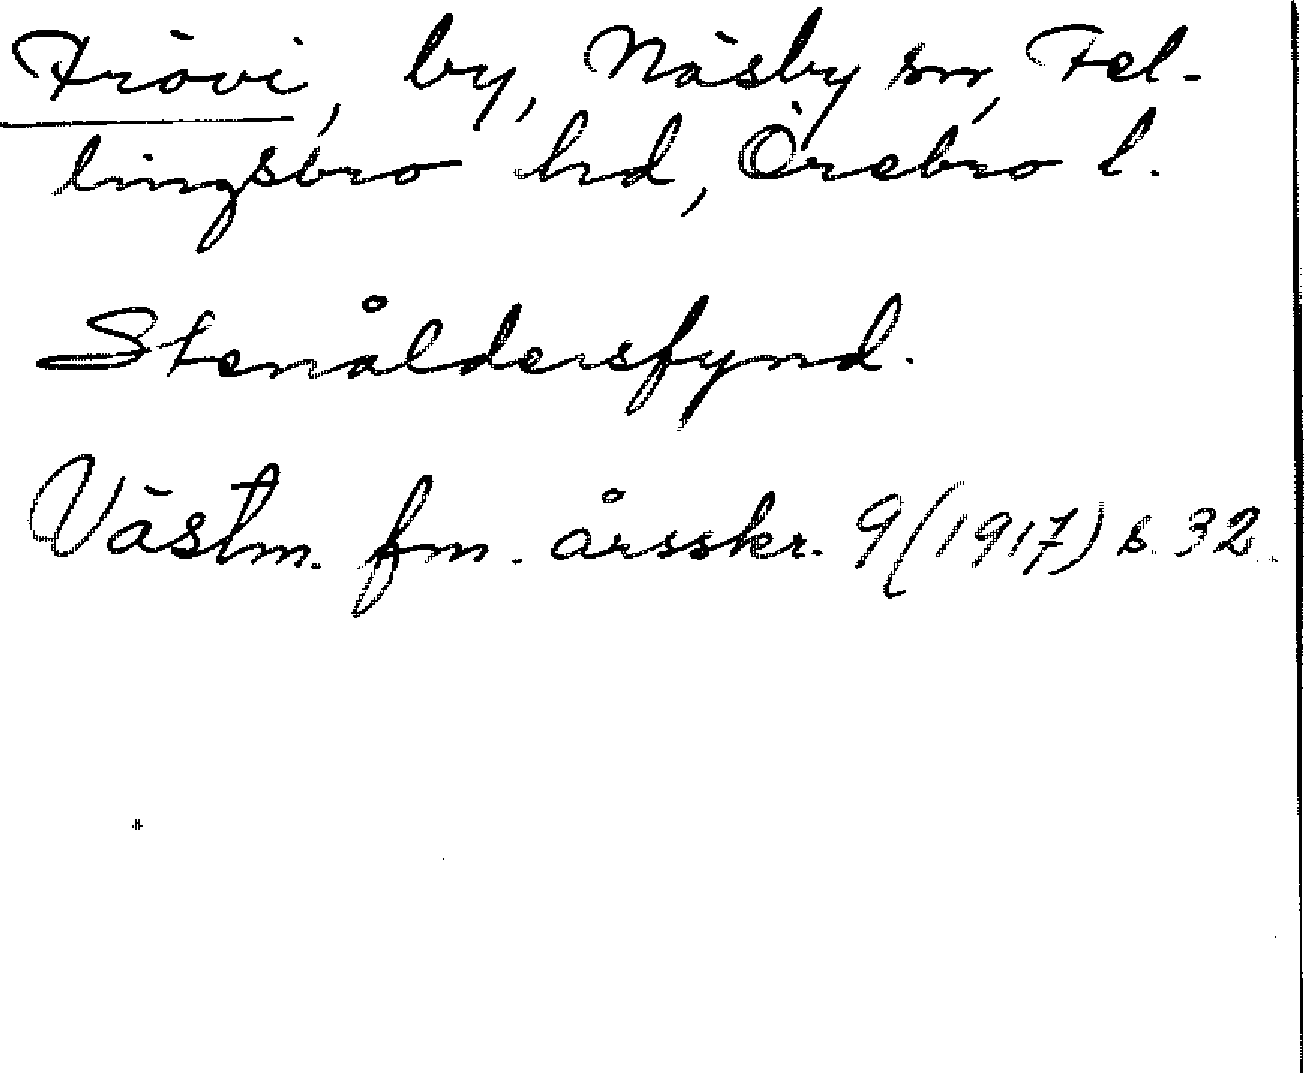 Frövi, by, Näsby sn, Fel-
lingsbro hd, Örebro l.
Stenåldersfynd.
Västm. fm. årsskr. 9 (1917) s. 32.